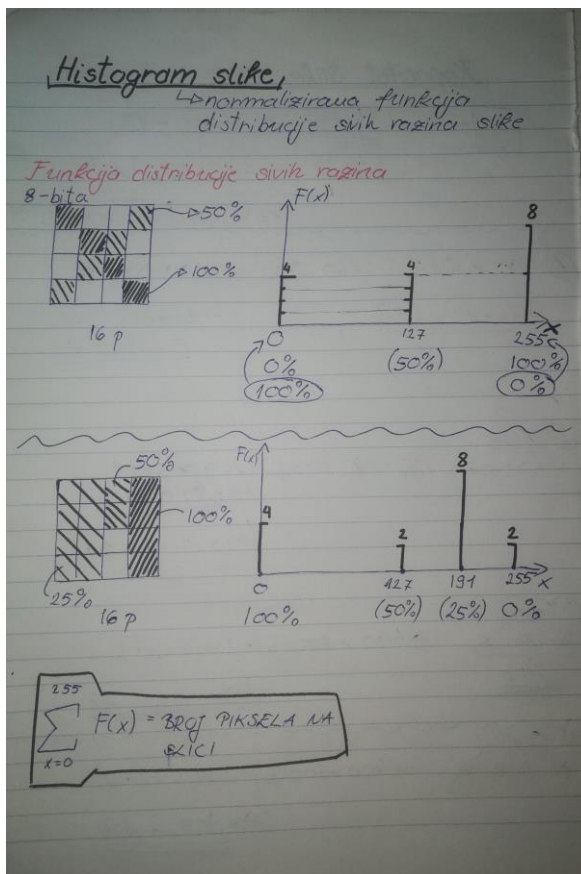 Histogram slike
normalizirana funkcija
distribucije sivih razina slike
Funkcija distribucije sivih razina
8-bita
50%
100%
16 p
F(x)
4
4
8
0
127
255
x
0%
(50%)
100%
100%
0%
50%
100%
25%
16 p
F(x)
4
2
8
2
0
127
191
255
x
100%
(50%)
(25%)
0%
255
∑ F(x) = BROJ PIKSELA NA
SLICI
x=0